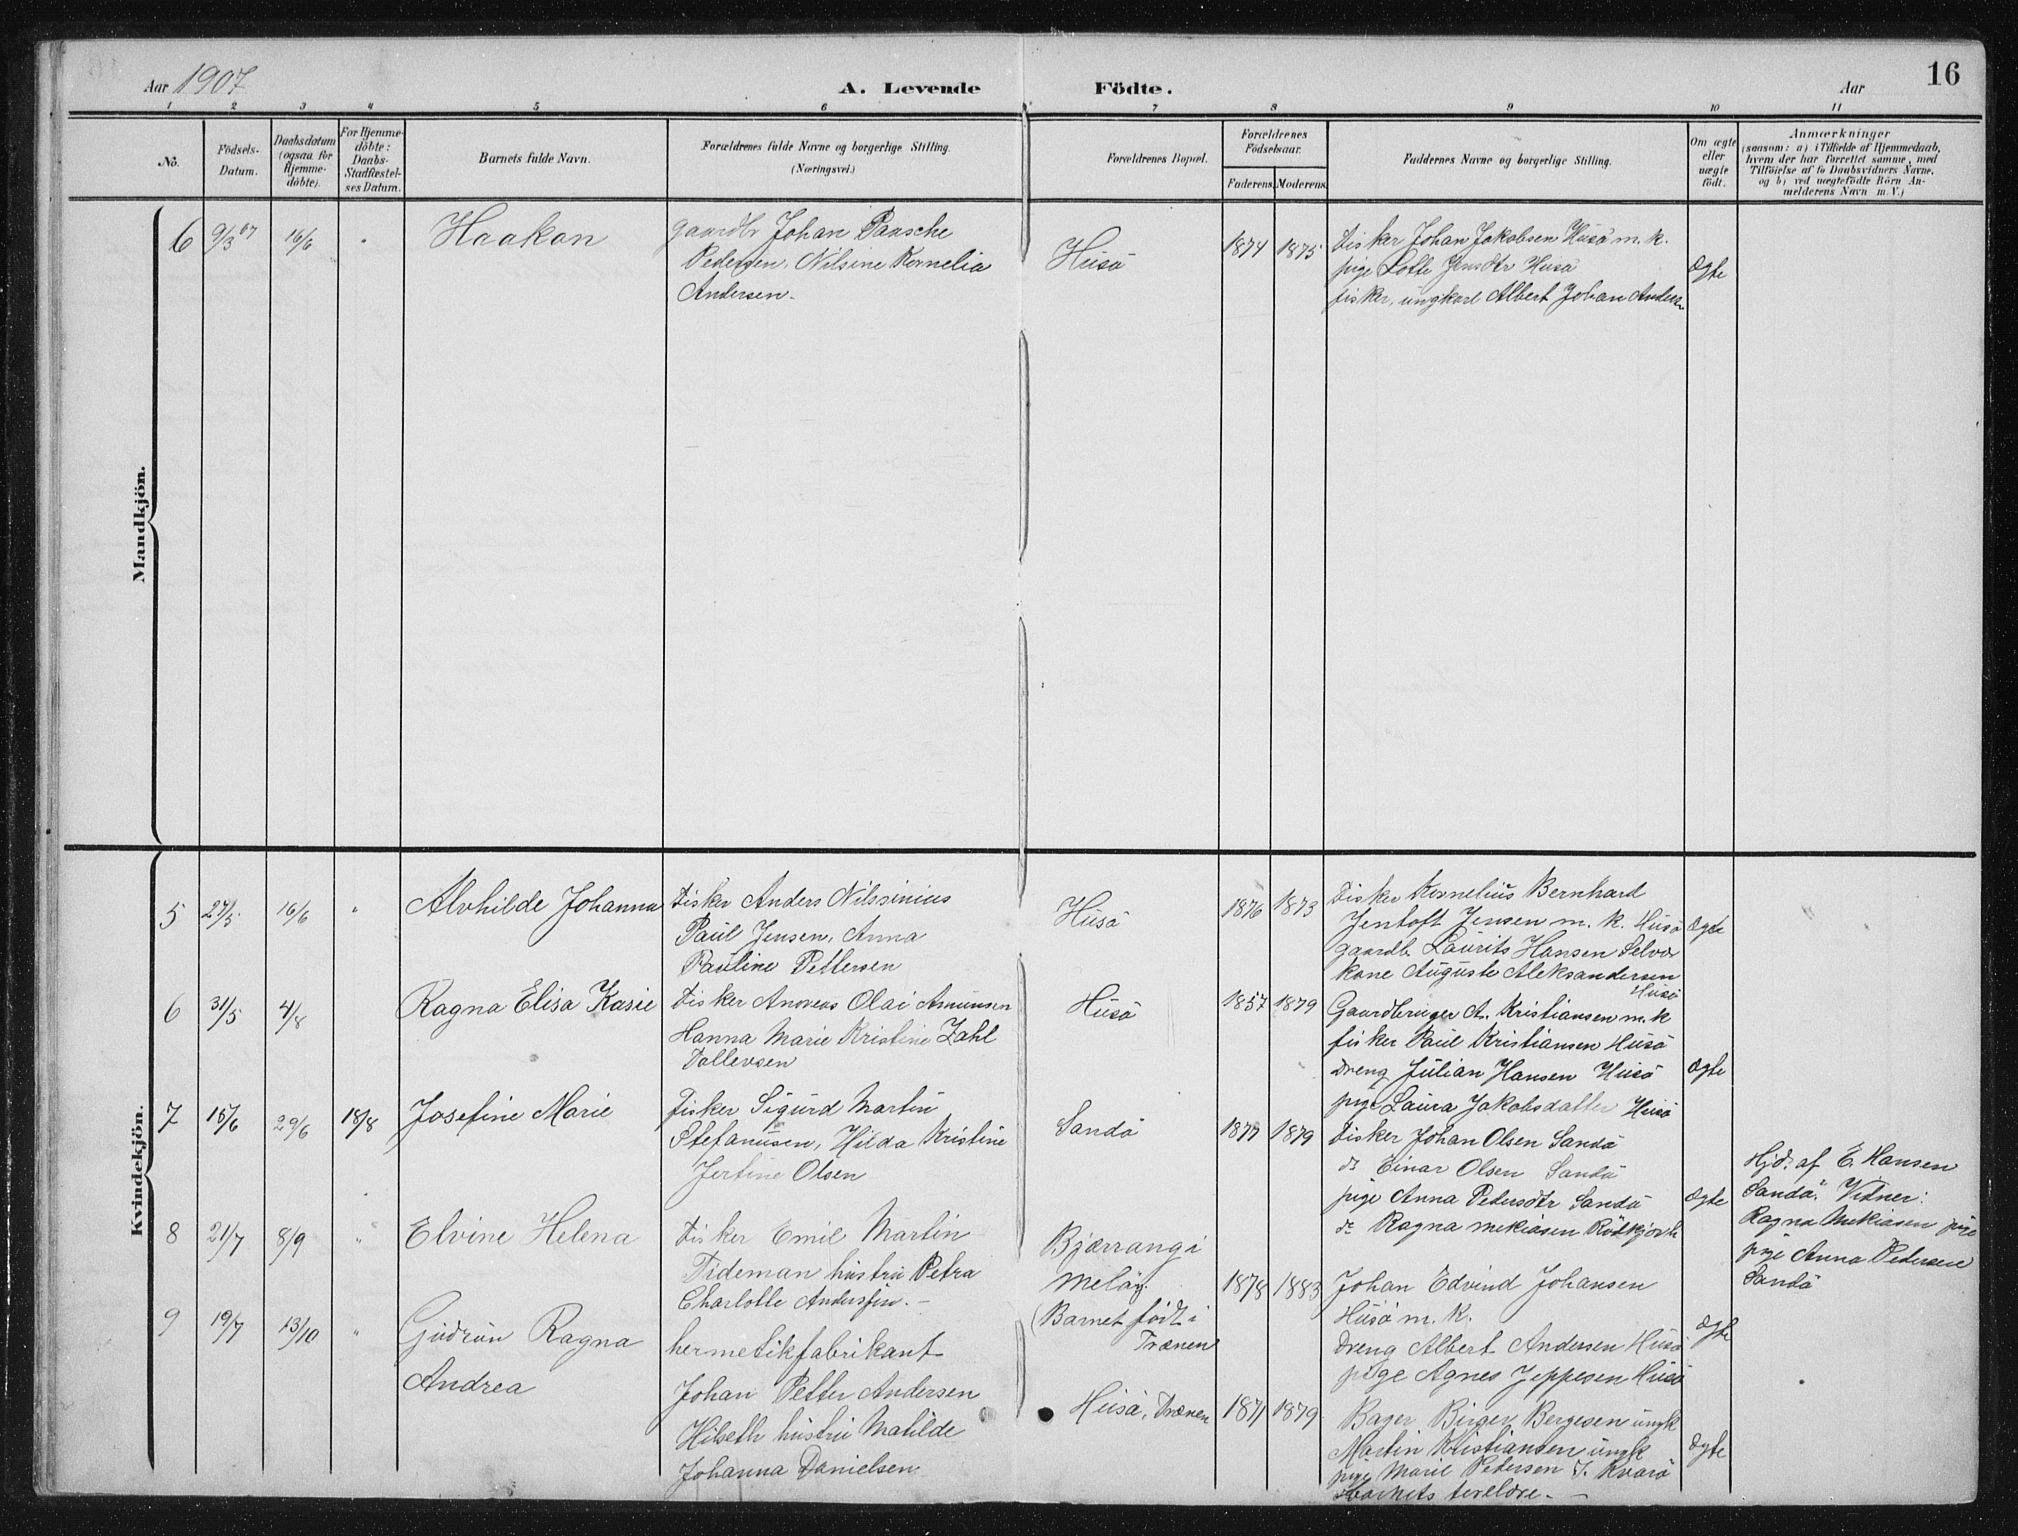 16
Aar 1907
A. Levende Födte.
Aar
1 2 3 4 5 6 7 8 9 10 11
No.
Födsels-
Datum.
Daabsdatum
(ogsaa for
Hjemme-
döbte).
For Hjemme-
döbte:
Daabs-
Stadfæstel-
ses Datum.
Barnets fulde Navn.
Forældrenes fulde Navne og borgerlige Stilling.
(Næringsvei.)
Forældrenes Bopæl.
Forældrenes
Födselsaar.
Faderens. Moderens.
Faddernes Navne og borgerlige Stilling.
Om ægte
eller
uægte
födt.
Anmærkninger
(saasom: a) i Tilfælde af Hjemmedaab,
hvem der har forrettet samme, med
Tilföielse af to Daabsvidners Navne,
og b) ved uægtefödte Börn An-
melderens Navn m. V.)
Mandkjön.
6 9/3 07 16/6 " Haakon
gaardbr Johan Paasche
Pedersen, Nilsine Kornelia
Andersen.
Husö
1874 1875
Fisker Johan Jakobsen Husö m. k.
pige Lotte Jensdtr Husö
fisker, ungkarl Albert Johan Anders
Ægte
Kvindekjön.
5 27/5 16/6 " Alvhilde Johanna
Fisker Anders Nilssinius
Paul Jensen, Anna
Pauline Pettersen
Husö
1876 1873
Fisker Kornelius Bernhard
Jentoft Jensen m. k. Husö
gaardb. Laurits Hansen Selvær
kone Auguste Aleksandersen
Husö
Ægte
6 31/5 4/8 Ragna Elisa Kasie
Fisker Andreas Olai Amunsen
Hanna Marie Kristine Zahl
Tollevsen
Husö
1857 1879
Gaardbruger A. Kristiansen m. k
fisker Paul Kristiansen Husö
Dreng Julian Hansen Husö
pige Laura Jakobsdatter Husö
Ægte
7 15/6 29/6 18/8 Josefine Marie
Fisker Sigurd Martin
Stefanusen, Hilda Kristine
Jertine Olsen
Sandö
1877 1879
Fisker Johan Olsen Sandö
do Einar Olsen Sandö
pige Anna Pedersdtr Sandö
do Ragna Mekiasen Rödkjorh
Ægte
Hjd. af E. Hansen
Sandö. Vidner:
Ragna Mekiasen pige
pige Anna Pedersen
Sandö
8 21/7 8/9 " Elvine Helena
Fisker Emil Martin
Tideman hustru Petra
Charlotte Andersen.
Bjærrang i
Melöy.
(Barnet født i
Trænen
1878 1883
Johan Edvind Johansen
Husö m. k.
Dreng Albert Andersen Husö
pige Agnes Jeppesen Husö
Ægte
9 19/7 13/10 " Gudrun Ragna
Andrea
hermetikfabrikant
Johan Petter Andersen
Hilseth hustru Matilde
Johanna Danielsen
Husö, Trænen
1871 1879
Bager Birger Bergesen ungk
Martin Kristiansen ungk
pige Marie Pedersen S. Kvarö
Barnets forældre.
Ægte